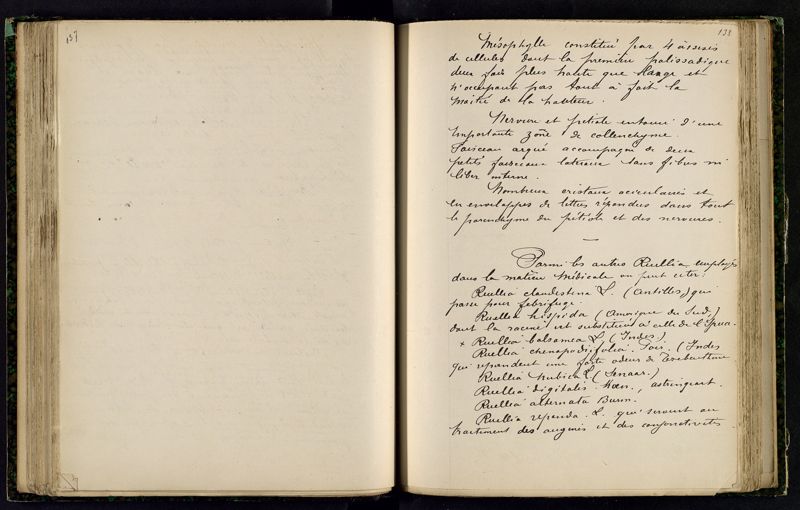 137
138
Mésophylle constitué par 4 assises
de cellules dont la première palissadique
deux fois plus haute que large et
n'occupant pas tout à fait la
moitié de la hauteur.
Nervure et pétiole entouré d'une
importante zône de collenchyme.
Faisceau arqué accompagné de deux
petits faisceaux latéraux sans fibres ni
liber interne.
Nombreux cristaux aciculaires et
en enveloppes de lettres répandus dans tout
le parenchyme du pétiole et des nervures.
Parmi les autres Ruellia employés
dans la matière médicale on peut citer:
Ruellia clandestina L. (Antilles) qui
passe pour fébrifuge.
Ruellia hispida (Amérique du Sud)
dont la racine est substituée à celle de l'Ipeca.
+ Ruellia balsamea L (Indes)
Ruellia chenopodiifolia. Poir. (Indes
qui répandent une forte odeur de Térébenthine
Ruellia nubica L (Senaar.)
Ruellia digitalis. astringeant.
Ruellia alternata Burm.
Ruellia repanda. L. qui servent au
traitement des angines et des conjonctivites